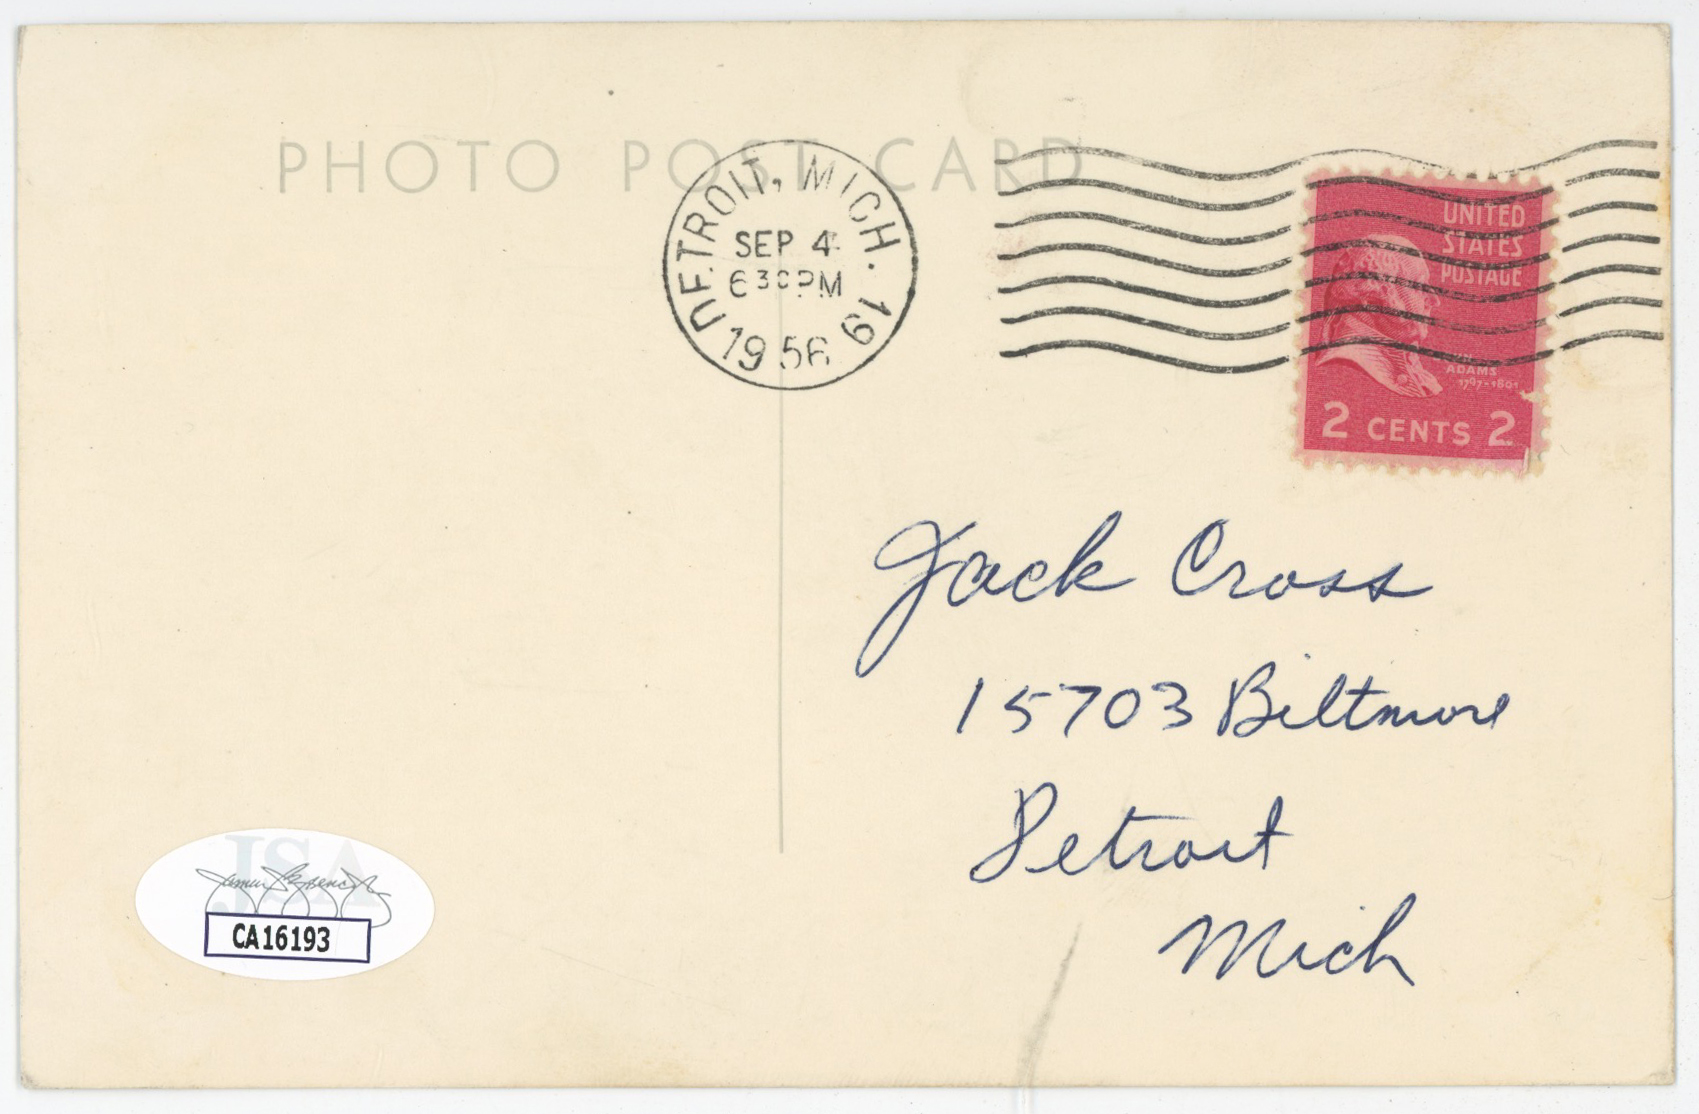 PHOTO POST CARD
DETROIT, MICH. 19
SEP 4
6 30 PM
1956
UNITED
STATES
POSTAGE
ADAMS
1797-1801
2 CENTS 2
Jack Cross
15703 Biltmore
Detroit
Mich
JSA
CA16193